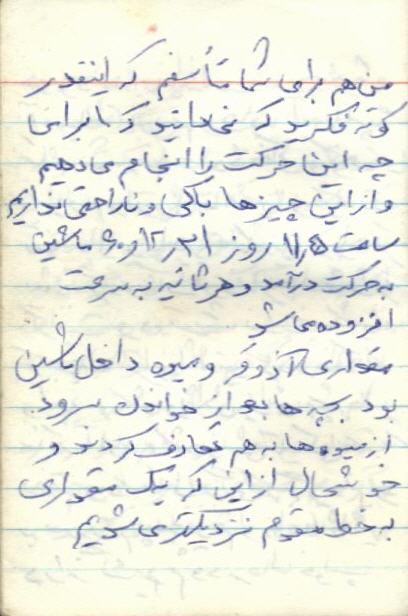 من هم برای شما متأسفم که اینقدر
کوته فکرید که نمی‌دانید که ما برای
چه این حرکت را انجام می‌دهیم
و از این چیزها باکی و ناراحتی نداریم
ساعت ۱۱٫۵ روز ۲۱ر۱۲ر۶۰ ماشین
به حرکت درآمد و هر ثانیه به سرعت
افزوده می‌شو
مقداری آذوقه و میوه داخل ماشین
بود بچه‌ها بعد از خواندن سرود
از میوه‌ها به هم تعارف کردند و
خوشحال از این که یک مقداری
به خط مقدم نزدیکتر می‌شویم